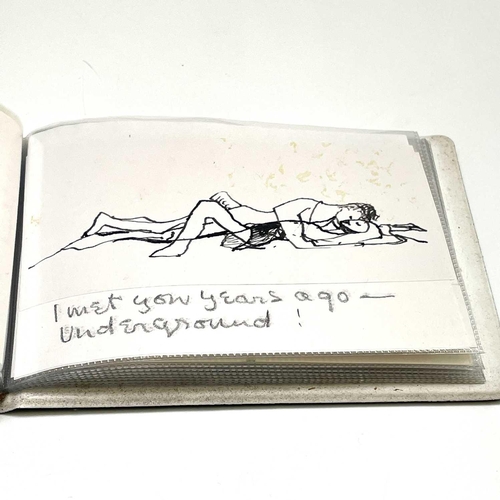 I met you years ago —
Underground !